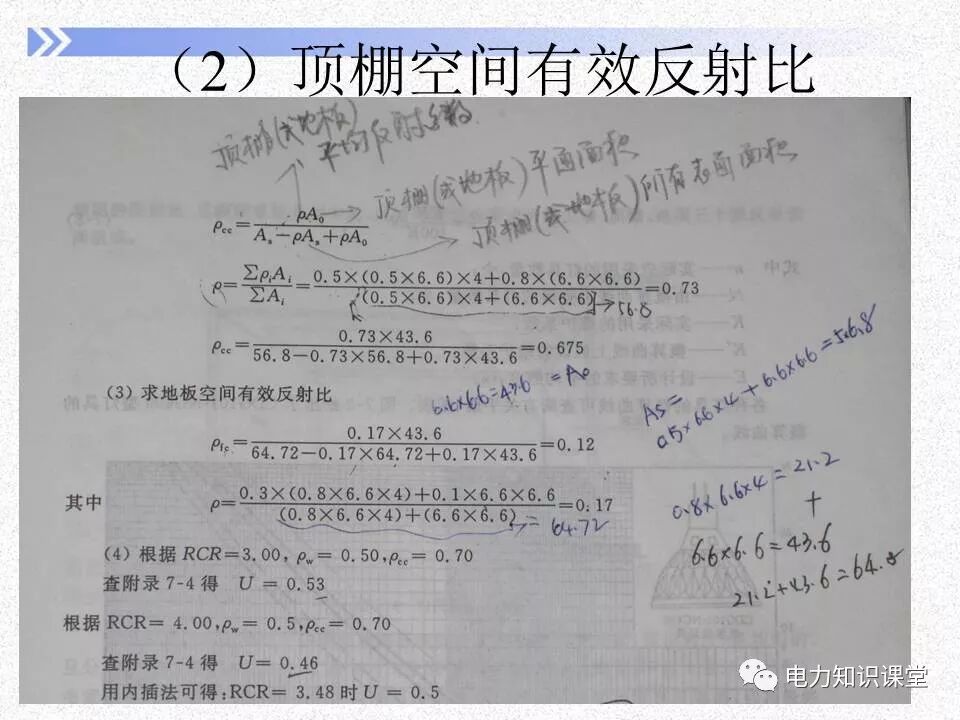 （2）顶棚空间有效反射比
顶棚(或地板)
平均反射系数
顶棚(或地板)平面面积
顶棚(或地板)所有表面面积
ρcc=ρA₀/(Aₛ−ρAₛ+ρA₀)
ρ=∑ρᵢAᵢ/∑Aᵢ=(0.5×(0.5×6.6)×4+0.8×(6.6×6.6))/((0.5×6.6)×4+(6.6×6.6))=0.73
56.8
ρcc=(0.73×43.6)/(56.8−0.73×56.8+0.73×43.6)=0.675
(3) 求地板空间有效反射比
6.6×6.6=43.6=A₀
As=
0.5×6.6×4+6.6×6.6=56.8
ρfc=(0.17×43.6)/(64.72−0.17×64.72+0.17×43.6)=0.12
其中 ρ=(0.3×(0.8×6.6×4)+0.1×6.6×6.6)/((0.8×6.6×4)+(6.6×6.6))=0.17
=64.72
0.8×6.6×4=21.2
+
6.6×6.6=43.6
21.2+43.6=64.8
(4) 根据 RCR=3.00, ρw = 0.50,ρcc = 0.70
查附录 7-4 得 U = 0.53
根据 RCR= 4.00,ρw= 0.5,ρcc= 0.70
查附录 7-4 得 U= 0.46
用内插法可得:RCR= 3.48 时 U = 0.5
电力知识课堂